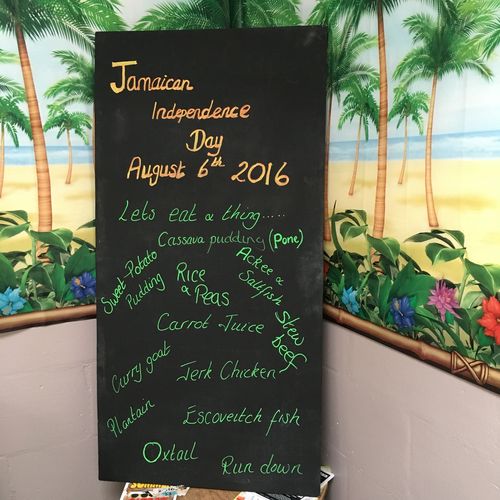 Jamaican
Independence
Day
August 6th 2016
Lets eat a thing.....
Cassava pudding (Pone)
Sweet Potato
Pudding
Rice
& Peas
Ackee &
Saltfish
Stew
beef
Carrot Juice
Curry goat
Jerk Chicken
Plantain
Escoveitch fish
Oxtail
Run down